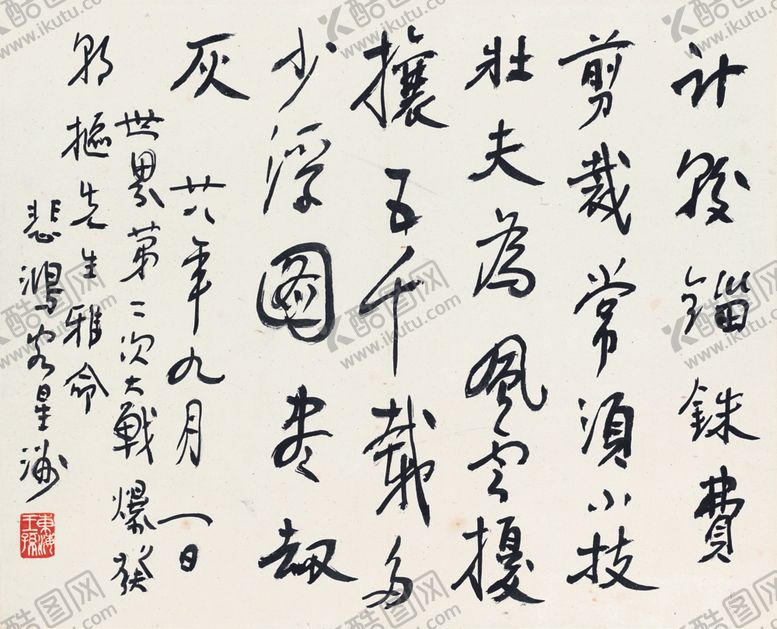 計較錙銖費
剪裁常須小技
壯夫為風雲擾
攘五千載多
少浮圖盡劫
灰
廿八年九月一日
世界第二次大戰爆發
樞先生雅命
悲鴻客星洲
東海王孫
酷图网
www.ikutu.com